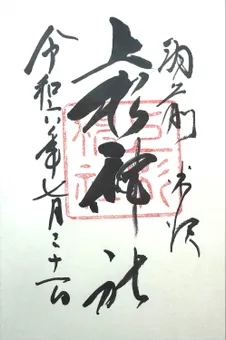 羽前米沢
上杉神社
令和六年七月二十一日